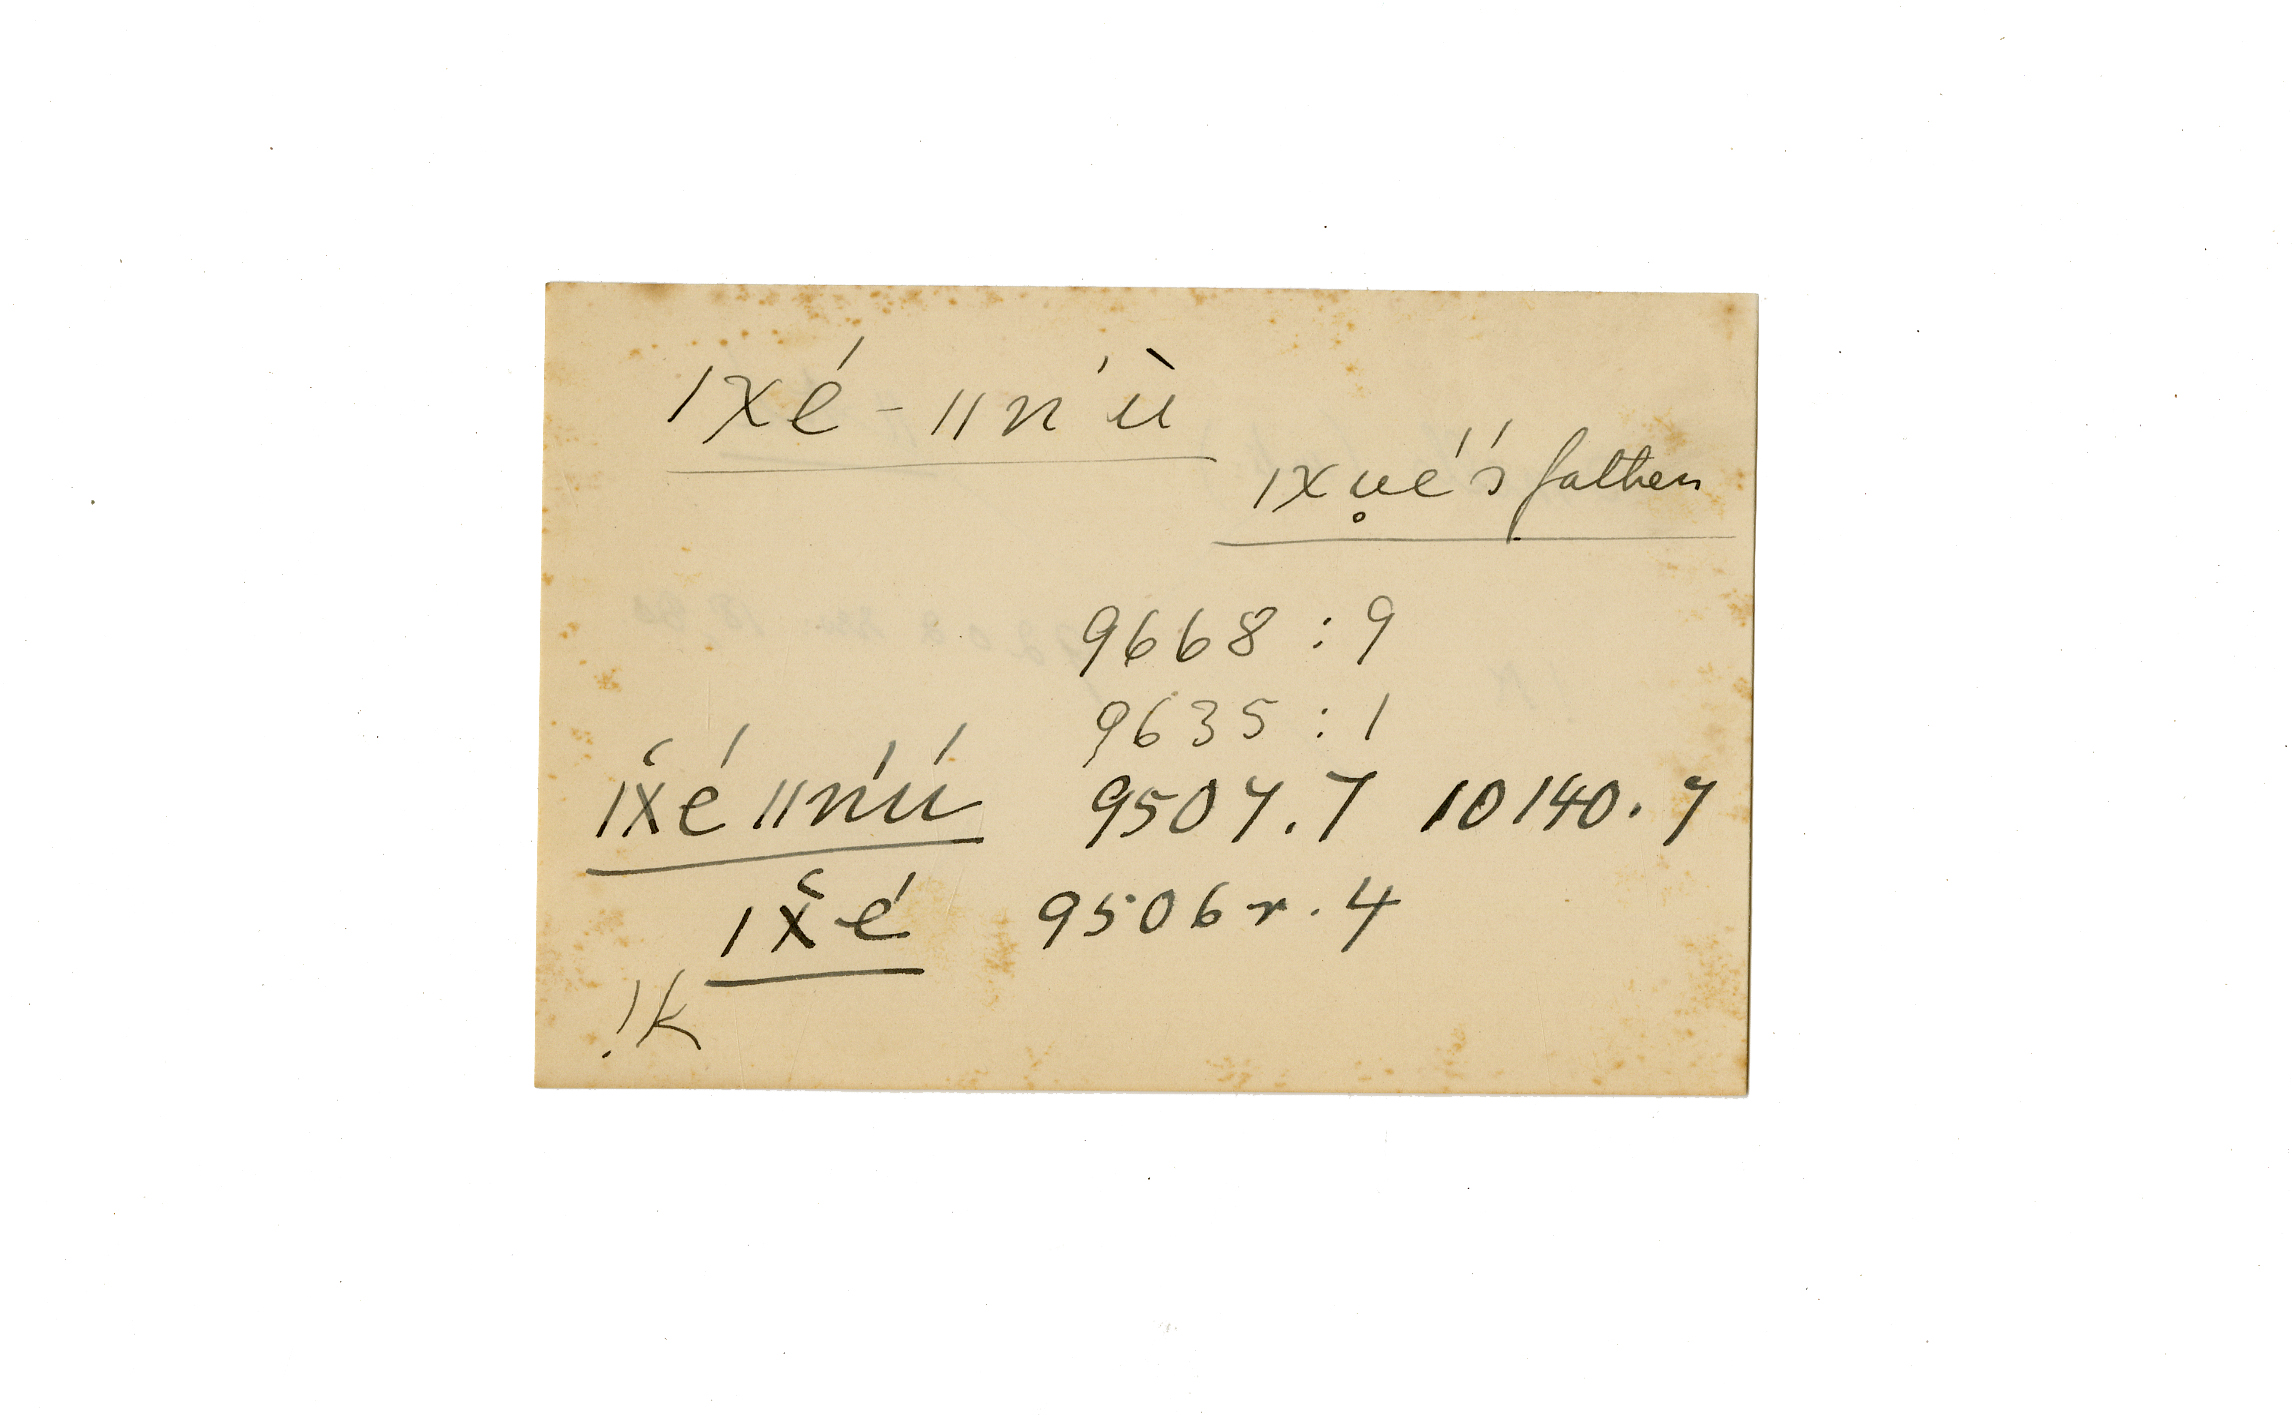 ǀxé - ǁn'ù
ǀxu̥é's father
9668 : 9
9635 : 1
ǀx̆é ǁn'ú 9507.7 10140.7
ǀx̆é 9506r.4
!k